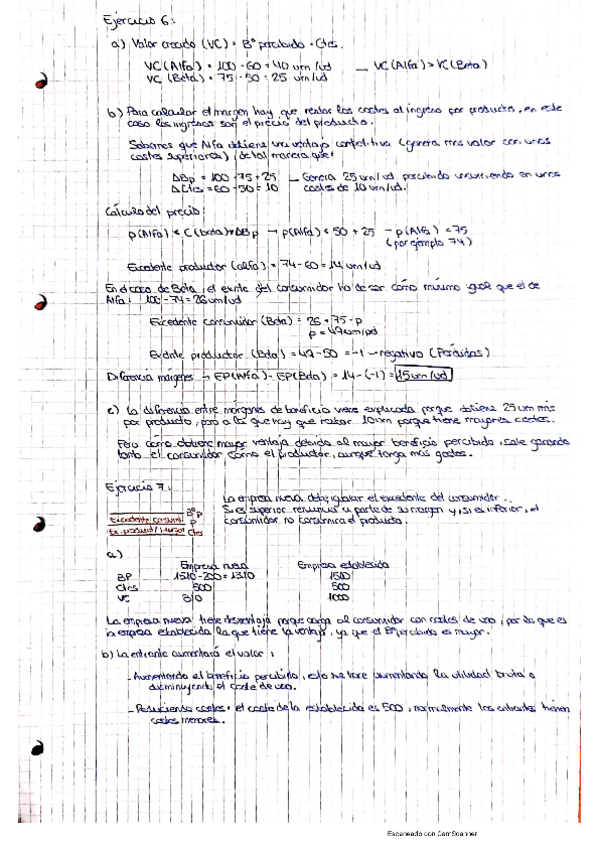 Ejercicio 6:
a) Valor creado (VC) = Bº percibido - Ctes.
VC (Alfa) = 100 - 60 = 40 um/ud → VC (Alfa) > VC (Beta)
VC (Beta) = 75 - 50 = 25 um/ud
b) Para calcular el margen hay que restar los costes al ingreso por producto, en este
caso los ingresos son el precio del producto.
Sabemos que Alfa obtiene una ventaja competitiva (genera más valor con unos
costes superiores), de tal manera que:
ΔBp = 100 - 75 = 25 → Genera 25 um/ud incurriendo en unos
ΔCtes = 60 - 50 = 10 costes de 10 um/ud.
Cálculo del precio:
p(Alfa) < C(beta) + ΔBp → p(Alfa) < 50 + 25 → p(Alfa) < 75
(por ejemplo 74)
Excedente productor (alfa) = 74 - 60 = 14 um/ud
En el caso de Beta, el del consumidor ha de ser como mínimo igual que el de
Alfa: 100 - 74 = 26 um/ud
Excedente consumidor (Beta) = 26 = 75 - p
p = 49 um/ud
productor (Beta) = 49 - 50 = -1 → negativo (Pérdidas)
Diferencia márgenes → EP(Alfa) - EP(Beta) = 14 - (-1) = 15 um/ud
c) La diferencia entre márgenes de beneficio viene explicada porque obtiene 25 um más
por producto, pero a las que hay que restar 10 um porque tiene mayores costes.
Pero como obtiene mayor ventaja debido al mayor beneficio percibido, sale ganando
tanto el consumidor como el productor, aunque tenga más gastos.
Ejercicio 7:
La empresa nueva debe igualar el excedente del consumidor.
Si es superior renuncia a parte de su margen y, si es inferior, el
consumidor no consumirá el producto.
Bº p
Excedente consumi. p
Ex. product / Ctes
a)
Empresa nueva Empresa establecida
BP 1510 - 200 = 1310 1510
Ctes 500 500
VC 810 1000
La empresa nueva tiene desventaja porque carga al consumidor con costes de uso, por lo que es
la empresa establecida la que tiene la ventaja, ya que el Bº percibido es mayor.
b) La entrante aumentará el valor:
- Aumentando el beneficio percibido, esto se hace aumentando la utilidad bruta o
disminuyendo el coste de uso.
- Reduciendo costes: el coste de la establecida es 500, normalmente los entrantes tienen
costes menores.
Escaneado con CamScanner